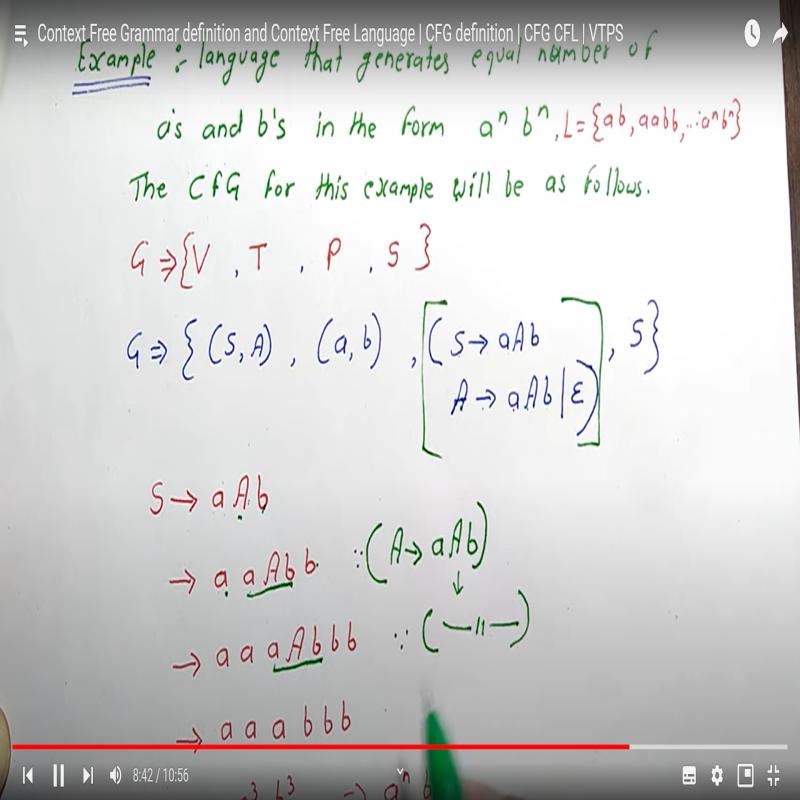 Context Free Grammar definition and Context Free Language | CFG definition | CFG CFL | VTPS
Example :- language that generates equal number of
a's and b's in the form aⁿ bⁿ, L={ab, aabb, ...aⁿbⁿ}
The CFG for this example will be as follows.
G ⇒ {V , T , P , S }
G ⇒ { (S, A) , (a, b) , (S → aAb , S}
A → aAb | ε)
S → aAb
→ a aAb b ∵ (A → aAb)
↓
→ a a aAb b b ∵ ( —〃— )
→ a a a b b b
a³ b³ → aⁿ b
8:42 / 10:56